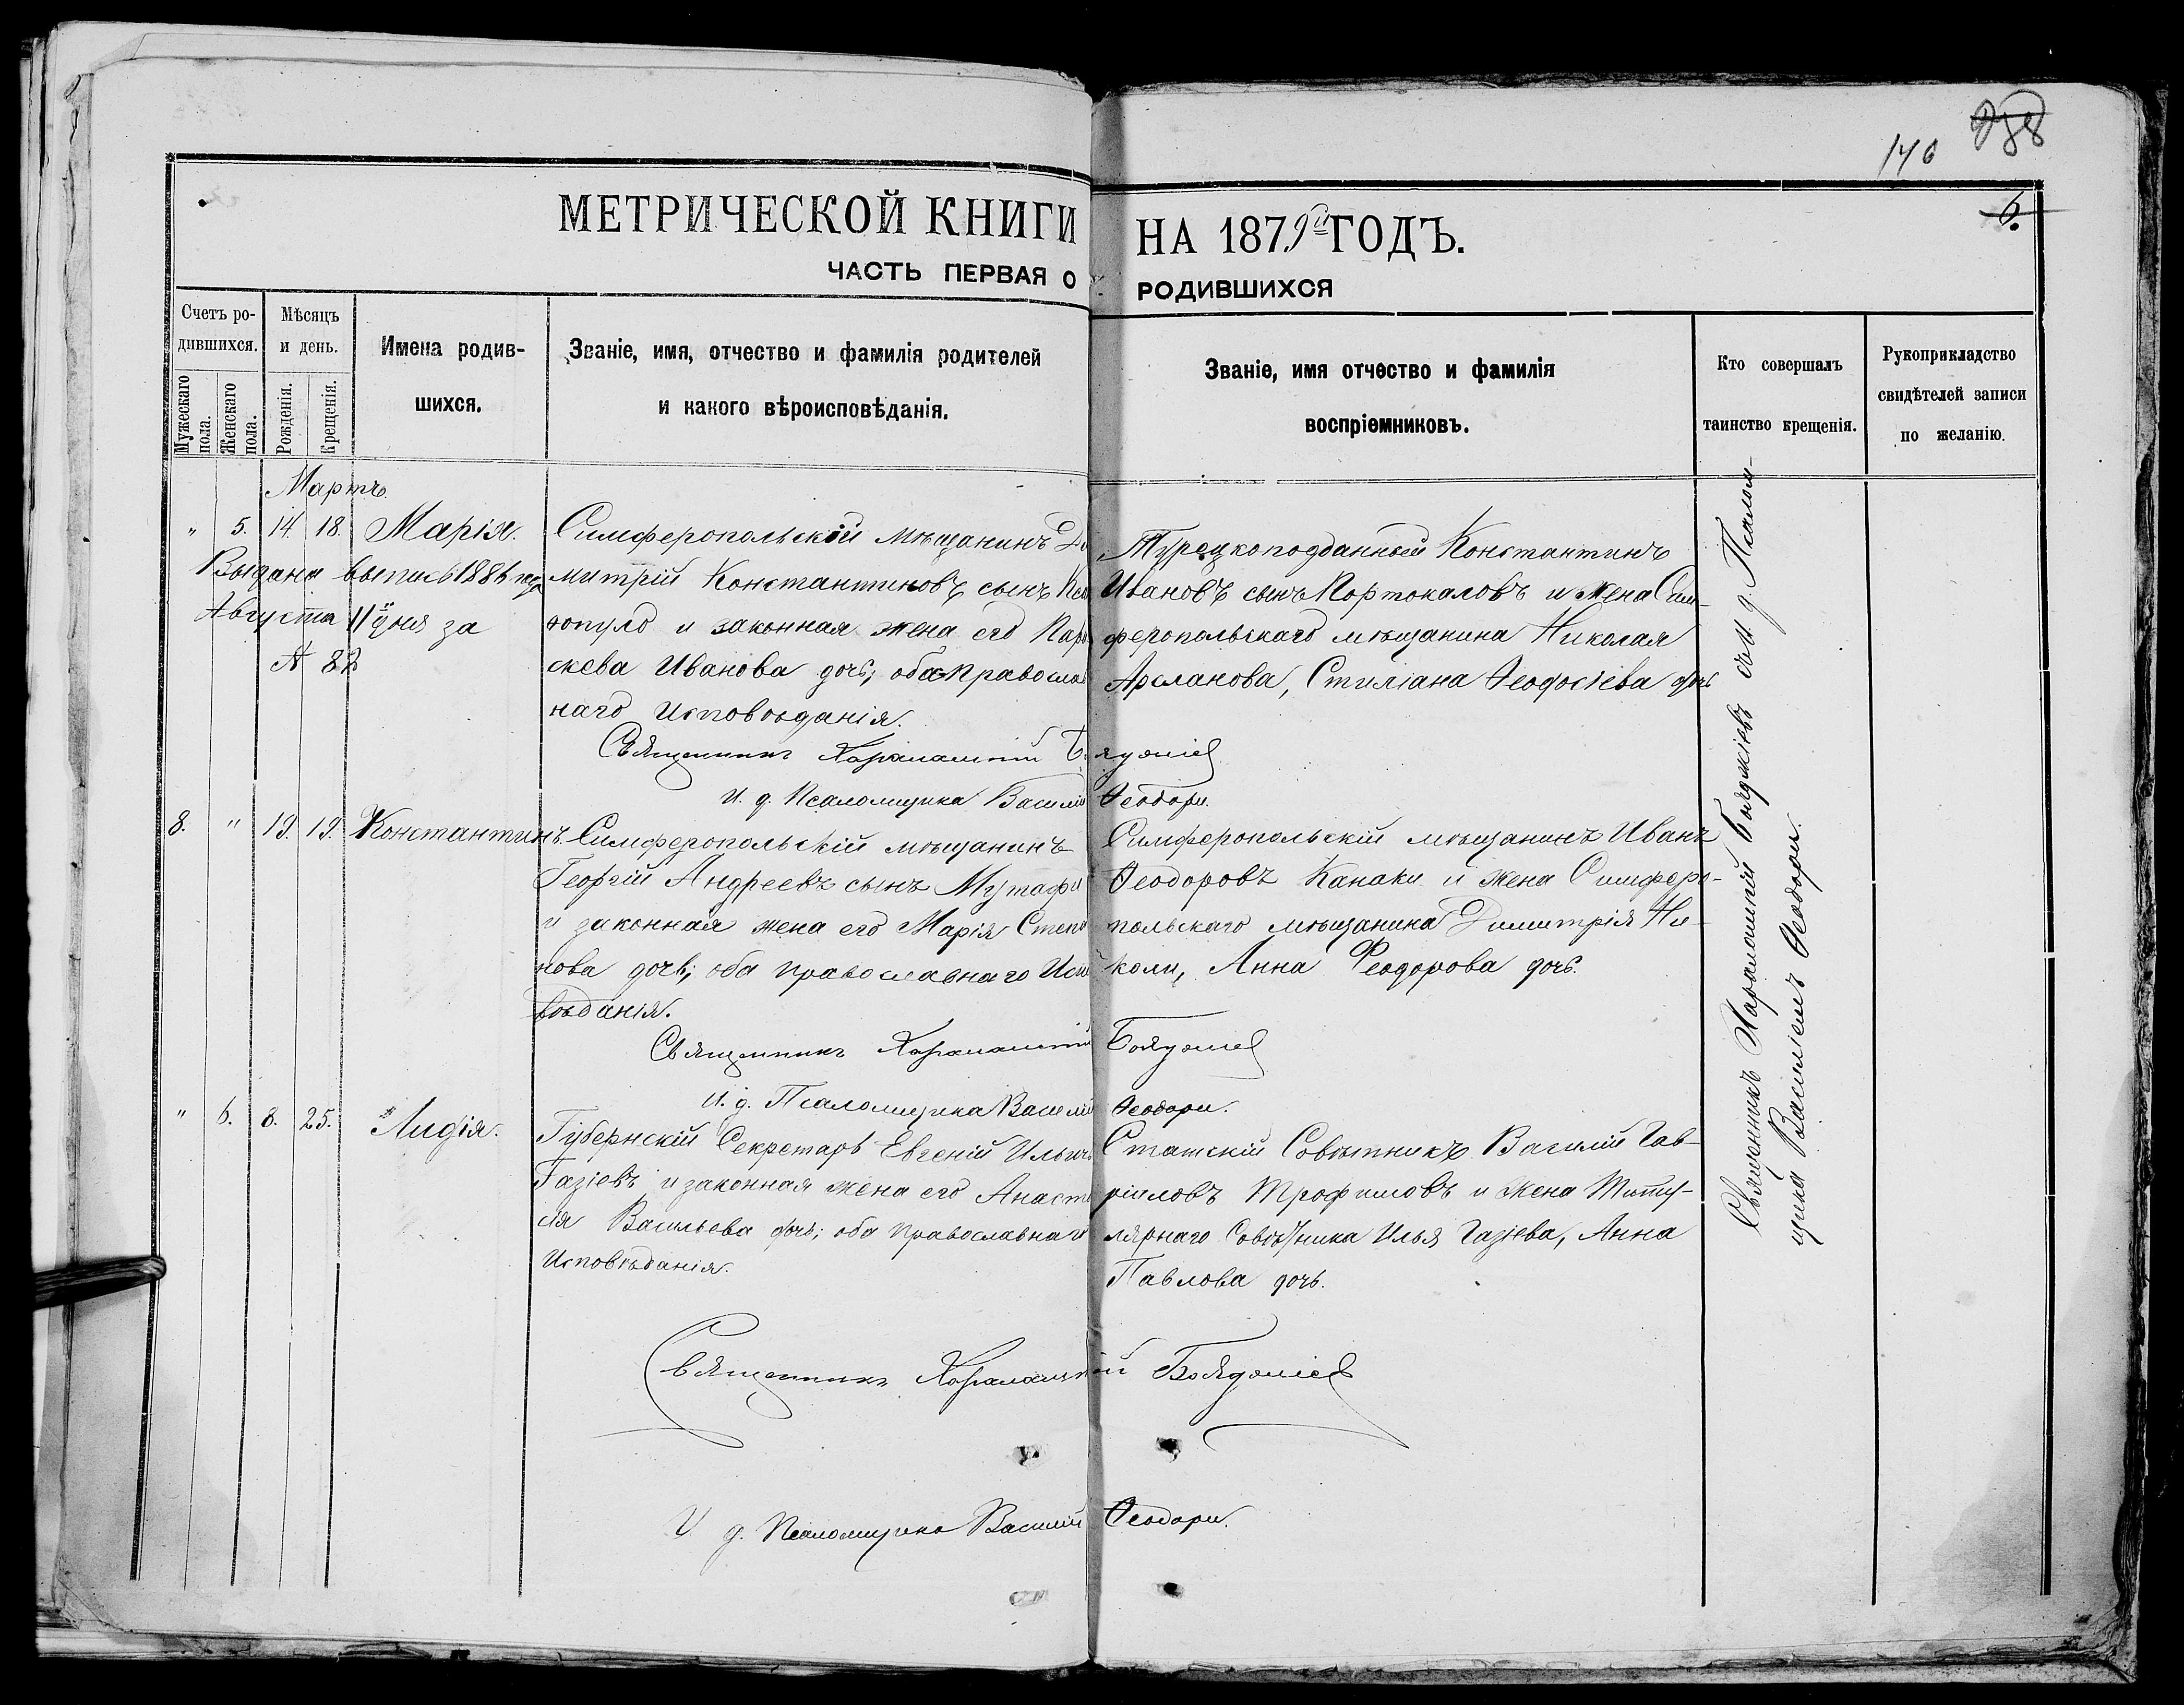 140 238
6.
МЕТРИЧЕСКОЙ КНИГИ НА 1879й ГОДЪ.
ЧАСТЬ ПЕРВАЯ О РОДИВШИХСЯ
Счетъ ро-
дившихся.
Мужескаго пола.
Женскаго пола.
Мѣсяцъ
и день.
Рожденія.
Крещенія.
Имена родив-
шихся.
Званіе, имя, отчество и фамилія родителей
и какого вѣроисповѣданія.
Званіе, имя отчество и фамилія
воспріемниковъ.
Кто совершалъ
таинство крещенія.
Рукоприкладство
свидѣтелей записи
по желанію.
Мартъ.
" 5. 14. 18. Марія.
Выдана выпись 1886 года
Августа 11 дня за
№ 82
Симферопольскій мѣщанинъ Ди
митрій Константиновъ сынъ
допуло и законная жена его Пара
скева Иванова дочь; оба Православ
наго Исповѣданія.
Турецкоподданный Константинъ
Ивановъ сынъ Портокаловъ и жена Сим-
феропольскаго мѣщанина Николая
Арсланова, Стиліана Ѳеодосіева дочь
Священникъ Харалампій Бояджіев
И. д. Псаломщика Василій Ѳеодори.
8. " 19. 19. Константинъ.
Симферопольскій мѣщанинъ
Георгій Андреевъ сынъ Мутафи
и законная жена его Марія Степа
нова дочь; оба православнаго Испо
вѣданія.
Симферопольскій мѣщанинъ Иванъ
Ѳеодоровъ Канаки и жена Симферо-
польскаго мѣщанина Димитрія Ни-
коли, Анна Феодорова дочь.
Священникъ Харалампій Бояджіев
И. д. Псаломщика Василій Ѳеодори.
" 6. 8. 25. Лидія.
Губернскій Секретарь Евгеній Ильичъ
Газіевъ и законная жена его Анаста
сія Васильева дочь; оба православнаго
Исповѣданія.
Статскій Совѣтникъ Василій Гав-
ріиловъ Трофимовъ и жена Титу-
лярнаго Совѣтника Илья Газіева, Анна
Павлова дочь.
Священникъ Харалампій Бояджіев
И д. Псаломщика Василій Ѳеодори.
Священникъ Харалампій Бояджіевъ съ И. д. Псалом-
щика Василіемъ Ѳеодори.